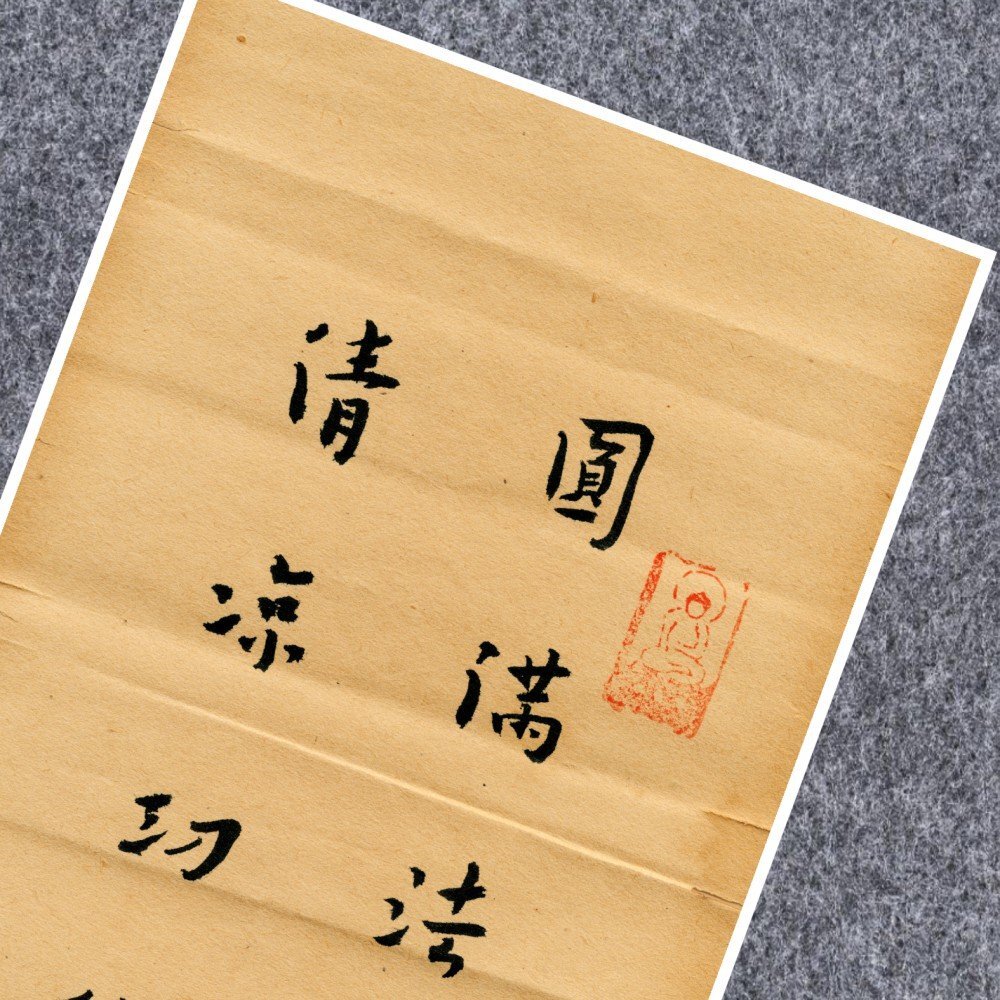 圓滿法
清凉功